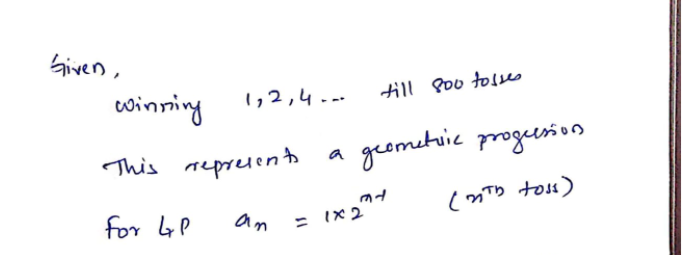 Given,
winning 1, 2, 4 ... till 800 tosses
This represents a geometric progression
for GP aₙ = 1×2ⁿ⁻¹ (nTh toss)